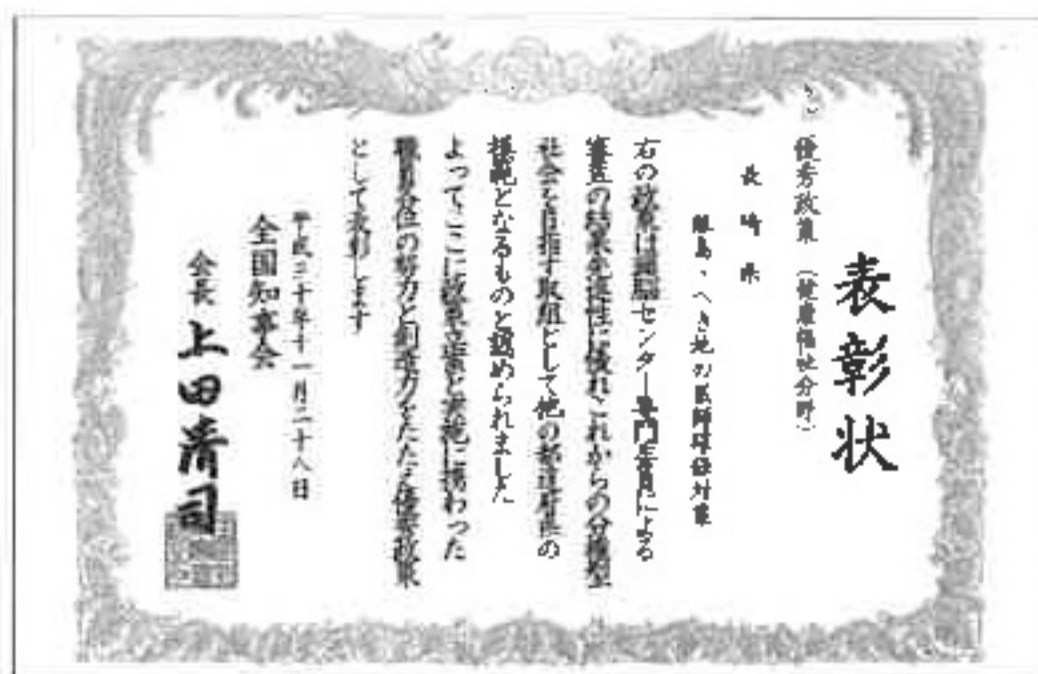 表彰状
優秀政策 (健康福祉分野)
長崎県
離島・へき地の医師確保対策
右の政策は頭脳センター専門委員による
審査の結果先進性に優れこれからの分権型
社会を目指す取組として他の都道府県の
模範となるものと認められました
よってここに政策立案と実施に携わった
職員各位の努力と創造力をたたえ優秀政策
として表彰します
平成三十年十一月二十八日
全国知事会
会長 上田清司